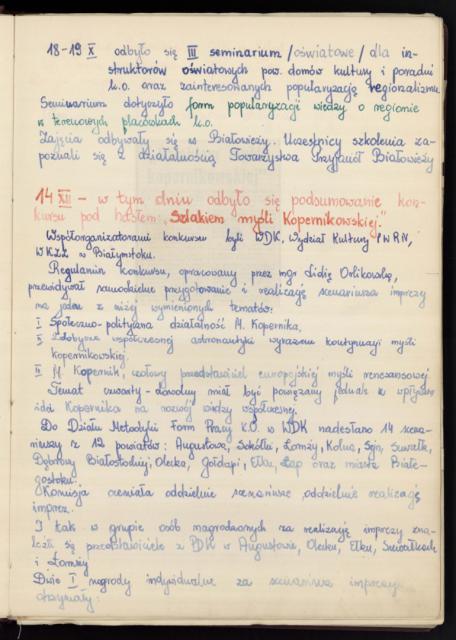 18-19 X odbyło się III seminarium /oświatowe/ dla in-
struktorów oświatowych pow. domów kultury i poradni
k.o. oraz zainteresowanych popularyzacją regionalizmu.
Seminarium dotyczyło form popularyzacji wiedzy o regionie
w terenowych placówkach k.o.
Zajęcia odbywały się w Białowieży. Uczestnicy szkolenia za-
poznali się z działalnością Towarzystwa Przyjaciół Białowieży
14 XII - w tym dniu odbyło się podsumowanie kon-
kursu pod hasłem: "Szlakiem myśli Kopernikowskiej."
Współorganizatorami konkursu byli WDK, Wydział Kultury PWRN,
WKZZ w Białymstoku.
Regulamin konkursu, opracowany przez mgr Lidię Orlikowską,
przewidywał samodzielne przygotowanie i realizację scenariusza imprezy
na jeden z niżej wymienionych tematów:
I Społeczno-polityczna działalność M. Kopernika,
II Zdobycze współczesnej astronautyki wyrazem kontynuacji myśli
kopernikowskiej.
III M. Kopernik, czołowy przedstawiciel europejskiej myśli renesansowej.
Temat czwarty - dowolny miał być powiązany jednak z wpływem
idei Kopernika na rozwój wiedzy współczesnej.
Do Działu Metodyki Form Pracy K.O w WDK nadesłano 14 scena-
riuszy z 12 powiatów: Augustowa, Sokółki, Łomży, Kolna, Sejn, Suwałk,
Dąbrowy Białostockiej, Olecka, Gołdapi, Ełku, Łap oraz miasta Białe-
gostoku.
Komisja oceniała oddzielnie scenariusz oddzielnie realizację
imprez.
I tak w grupie osób nagrodzonych za realizację imprezy zna-
leźli się przedstawiciele z PDK w Augustowie, Olecku, Ełku, Suwałkach
i Łomży
Dwie I nagrody indywidualne za scenariusz imprezy
otrzymały: